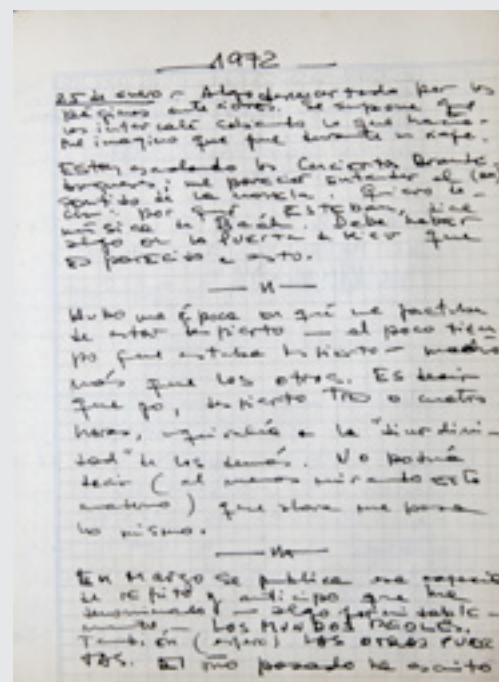 1972
25 de enero - Algo desconcertado por las
páginas anteriores. Se supone que
las intercalé sabiendo lo que hacía.
Me imagino que fue durante un viaje.
Estoy escuchando los Conciertos Brande
burgueses; me pareció entender el (un)
sentido de la novela. Quiero de
cir: por qué ESTEBAN, dice
música de Bach. Debe haber
algo en la puerta a Hier que
es parecido a esto.
Hubo una época en que me jactaba
de estar despierto — el poco tiem
po que estaba despierto —
más que los otros. Es decir
que yo, despierto tres o cuatro
horas, equivalía a la
de los demás. No podría
decir (al menos mirando este
cuaderno) que ahora me pasa
lo mismo.
En Marzo se publica una especie
de refrito y anticipo que he
denominado — algo formidable
mente — LOS MUNDOS REALES.
También (espero) LAS OTRAS PUER
TAS. El año pasado he escrito